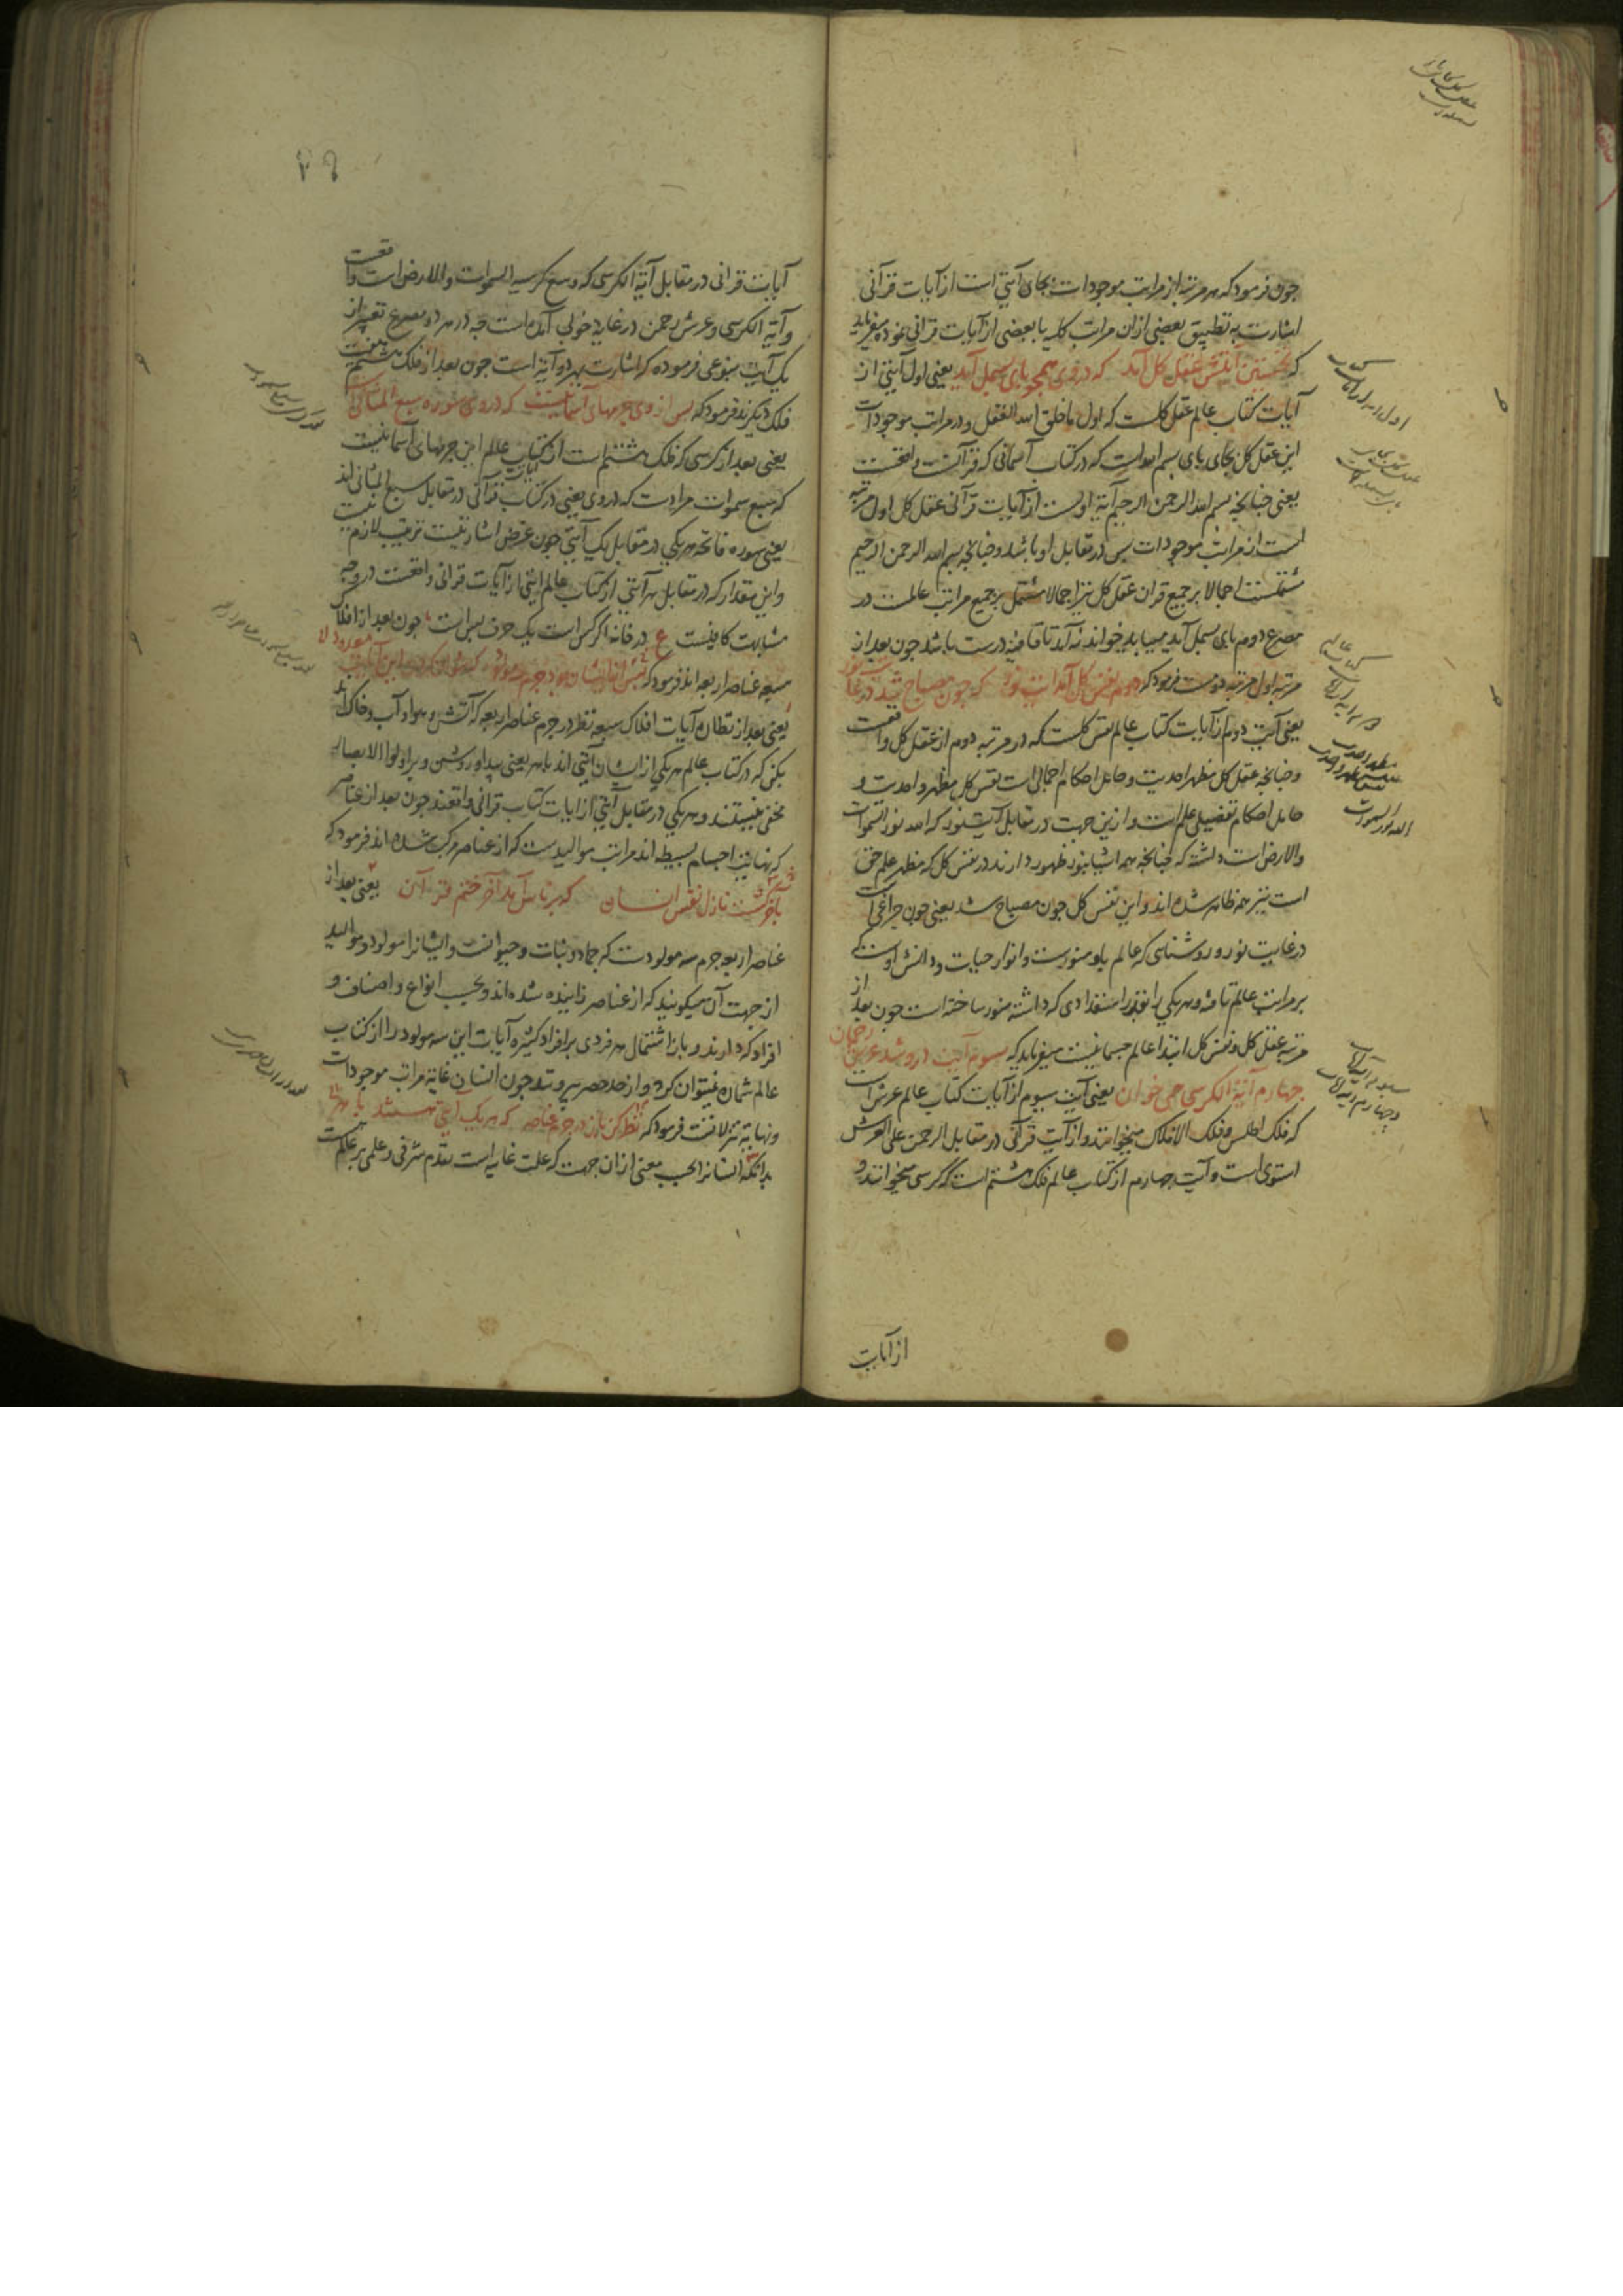 چون فرمود که هر مرتبه از مراتب موجودات بجای آیتی است از آیات قرآنی
اشارت به تطبیق بعضی ازان مراتب کلیه با بعضی از آیات قرانی نموده میفرماید
که نخستین آیتش عقل کل آمد که در وی همچو بای بسمل آمد یعنی اول آیتی از
آیات کتاب عالم عقل کلست که اول ما خلق الله العقل و در مراتب موجودات
این عقل کل بجای بای بسم الله است که در کتاب آسمانی که قرآنست واقعست
یعنی چنانچه بسم الله الرحمن الرحیم آیة اولست از آیات قرآنی عقل کل اول مرتبه
است از مراتب موجودات پس در مقابل او باشد و چنانچه بسم الله الرحمن الرحیم
مشتملست اجمالا بر جمیع قران عقل کل نیز اجمالا مشتمل بر جمیع مراتب عالمست در
مصرع دوم بای بسمل آمد میباید خواند نه آمد تا قافیه درست باشد چون بعد از
مرتبه اول مرتبه دومست فرمود که دوم نفس کل آمد آیت نور که چون مصباح شد در غایت نور
یعنی آیت دوم از آیات کتاب عالم نفس کلست که در مرتبه دوم از عقل کل واقعست
و چنانچه عقل کل مظهر احدیت و حامل احکام اجمالی است نفس کل مظهر واحدیت و
حامل احکام تفصیلی علم است و ازین جهت در مقابل آیت نور که الله نور السموات
والارض است داشته که چنانچه همه اشیا بنور ظهور دارند در نفس کل که مظهر علم حق
است نیز همه ظاهر شده اند و این نفس کل چون مصباح شد یعنی چون چراغی است
در غایت نور و روشنائی که عالم باو منورست و انوار حیات و دانش اوست که
بر مراتب عالم تافته و هر یکی را بقدر استعدادی که داشته منور ساخته است چون بعد از
مرتبه عقل کل و نفس کل ابتدا عالم جسمانیست میفرماید که سیوم آیت درو شد عرش رحمان
چهارم آیة الکرسی همی خوان یعنی آیت سیوم از آیات کتاب عالم عرش است
که فلک اطلس و فلک الافلاک میخوانند و از آیت قرآنی در مقابل الرحمن علی العرش
استوی است و آیت چهارم از کتاب عالم فلک هشتم است که کرسی میخوانند و
از آیات
الله نور السموات
۲۶
آیات قرانی در مقابل آیة الکرسی که وسع کرسیه السموات والارض است واقعست
و آیة الکرسی و عرش رحمن در غایة خوبی آمده است چه در هر دو مصرع تعبیر از
یک آیت بنوعی فرموده که اشارت بهر دو آیة است چون بعد از فلک هشتم هفت
فلک دیگرند فرمود که پس از وی جرمهای آسمانیست که در وی سوره سبع المثانی است
یعنی بعد از کرسی که فلک هشتم است از کتاب عالم این جرمهای آسمانیست
که سبع سموات مرادست که در وی یعنی در کتاب قرآنی در مقابل آیات سبع المثانی اند
یعنی سوره فاتحه هر یکی در مقابل یک آیتی چون غرض اشارتیست ترتیب لازم نیست
و این مقدار که در مقابل هر آیتی از کتاب عالم آیتی از آیات قرانی واقعست در وجه
مشابهت کافیست ع در خانه اگر کس است یک حرف بس است چون بعد از افلاک
سبعه عناصر اربعه اند فرمود که
یعنی بعد از آیات افلاک سبعه نظر در جرم عناصر اربعه که آتش و هوا و آب و خاک اند
بکن که در کتاب عالم هر یکی از ایشان آیتی اند باهر یعنی پیدا و روشن و بر اولوا الابصار
مخفی نیستند و هر یکی در مقابل آیتی از آیات کتاب قرانی واقعند چون بعد از عناصر
که نهایت اجسام بسیطه اند مراتب موالیدست که از عناصر مرکب شده اند فرمود که
بآخر گشت نازل نفس انسان که بر ناس آمد آخر ختم قرآن یعنی بعد از
عناصر اربعه جرم سه مولودست که جماد و نبات و حیوانست و ایشانرا مولود و موالید
از جهت آن میگویند که از عناصر زاییده شده اند و بحسب انواع و اصناف و
افراد که دارند و باز اشتمال هر فردی بر افراد کثیره آیات این سه مولود را از کتاب
عالم شماره نمیتوان کرد و از حد حصر بیرونند چون انسان غایة مراتب موجودات
و نهایة تنزلاتست فرمود که نظر کن باز در جرم عناصر که هر یک آیتی هستند باهر
بدانکه انسانرا بحسب معنی ازان جهت که علت غاییه است تقدم شرفی و علمی بر عالمست